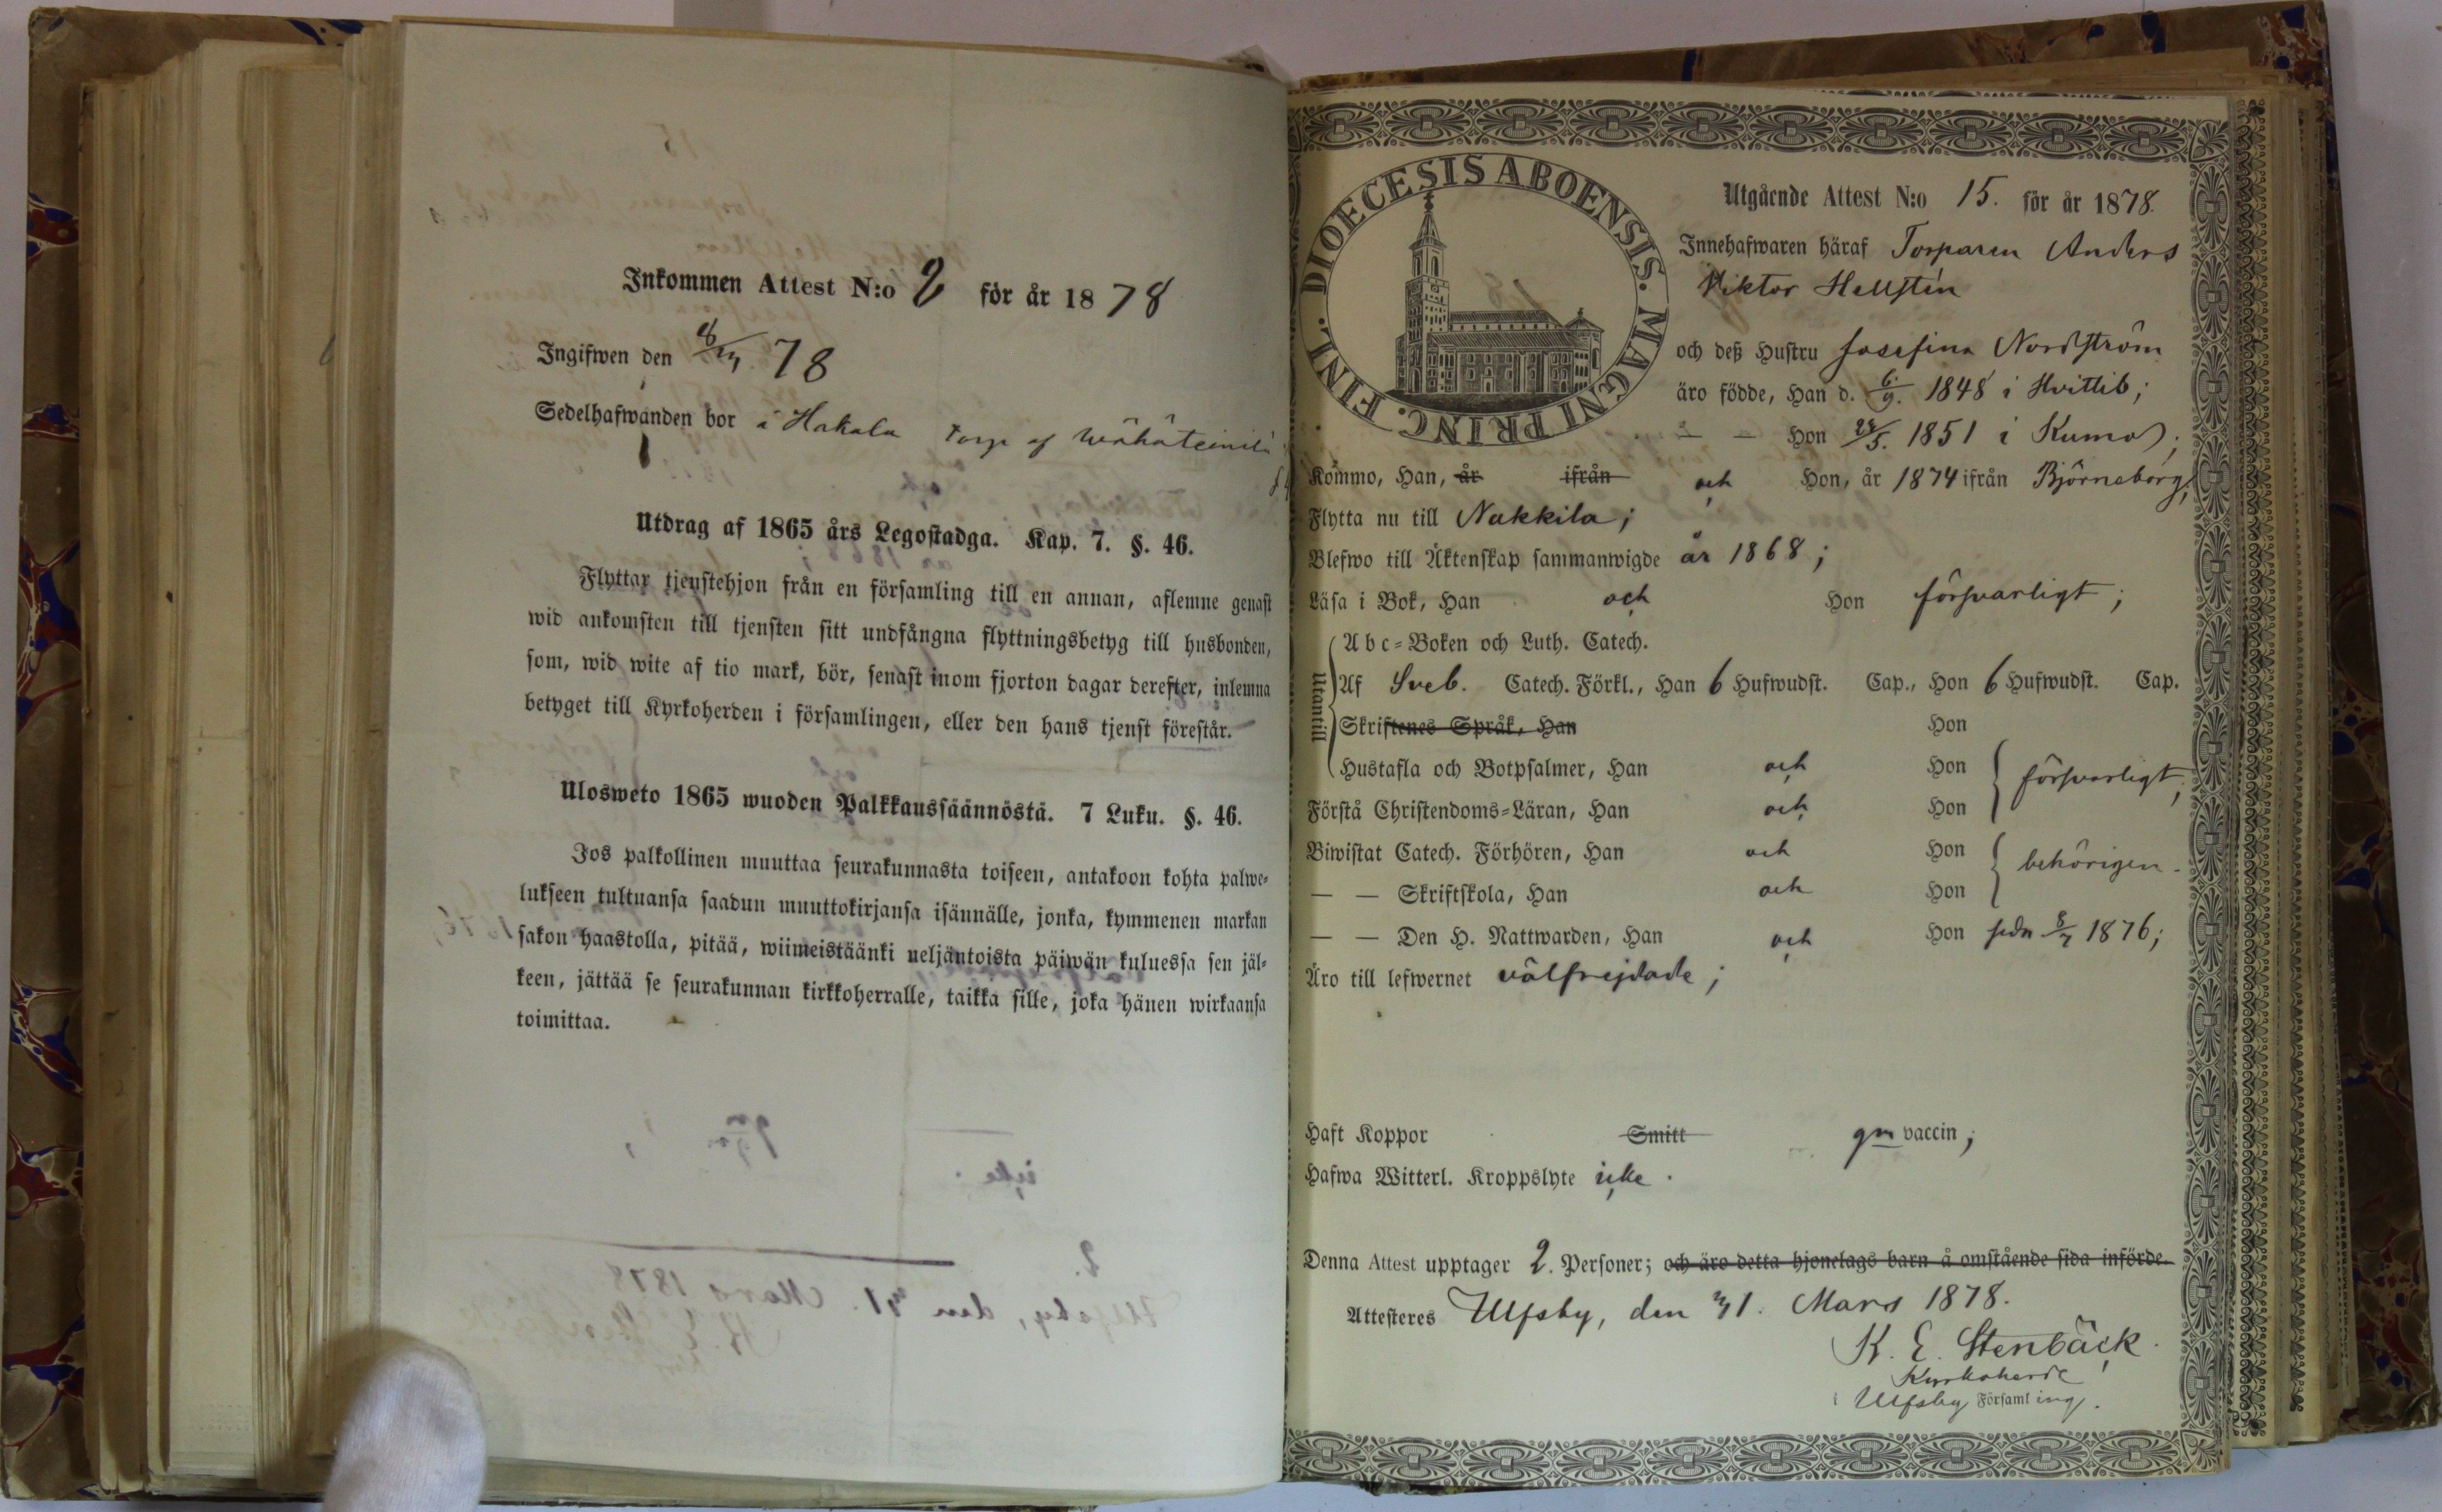 Inkommen Attest N:o 2 för år 1878
Ingifwen den 8/4 78
Sedelhafwanden bor å Hakala torp af
Utdrag af 1865 års Legostadga. Kap. 7. §. 46.
Flyttar tjenstehjon från en församling till en annan, aflemne genast
wid ankomsten till tjensten sitt undfångna flyttningsbetyg till husbonden,
som, wid wite af tio mark, bör, senast inom fjorton dagar derefter, inlemna
betyget till Kyrkoherden i församlingen, eller den hans tjenst förestår.
Ulosweto 1865 wuoden Palkkaussäännöstä. 7 Luku. §. 46.
Jos palkollinen muuttaa seurakunnasta toiseen, antakoon kohta palwe-
lukseen tultuansa saadun muuttokirjansa isännälle, jonka, kymmenen markan
sakon haastolla, pitää, wiimeistäänki neljäntoista päiwän kuluessa sen jäl-
keen, jättää se seurakunnan kirkkoherralle, taikka sille, joka hänen wirkaansa
toimittaa.
DIOECESIS ABOENSIS. MAGNI PRINC. FINL.
Utgående Attest N:o 15. för år 1878.
Innehafwaren häraf Torparen Anders
Viktor Hellstén
och deß Hustru Josefina Nordström
äro födde, Han d. 6/9. 1848 i Hvittib;
— — Hon 28/5. 1851 i Kumo;
Kommo, Han, år ifrån och Hon, år 1874 ifrån Björneborg;
Flytta nu till Nakkila;
Blefwo till Äktenskap sammanwigde år 1868;
Läsa i Bok, Han och Hon försvarligt;
Utantill
Abc-Boken och Luth. Catech.
Af Sveb. Catech. Förkl., Han 6 Hufwudst. Cap., Hon 6 Hufwudst. Cap.
Skriftenes Språk, Han Hon
Hustafla och Botpsalmer, Han och Hon försvarligt;
Förstå Christendoms-Läran, Han och Hon
Biwistat Catech. Förhören, Han och Hon behörigen
— — Skriftskola, Han och Hon
— — Den H. Nattwarden, Han och Hon sedn 8/7 1876;
Äro till lefwernet välfrejdade;
Haft Koppor Smitt gm vaccin;
Hafwa Witterl. Kroppslyte icke.
Denna Attest upptager 2. Personer; och äro detta hjonelags barn å omstående sida införde.
Attesteres Ulfsby, den 31. Mars 1878.
K. E. Stenbäck.
Kyrkoherde
i Ulfsby Församling.